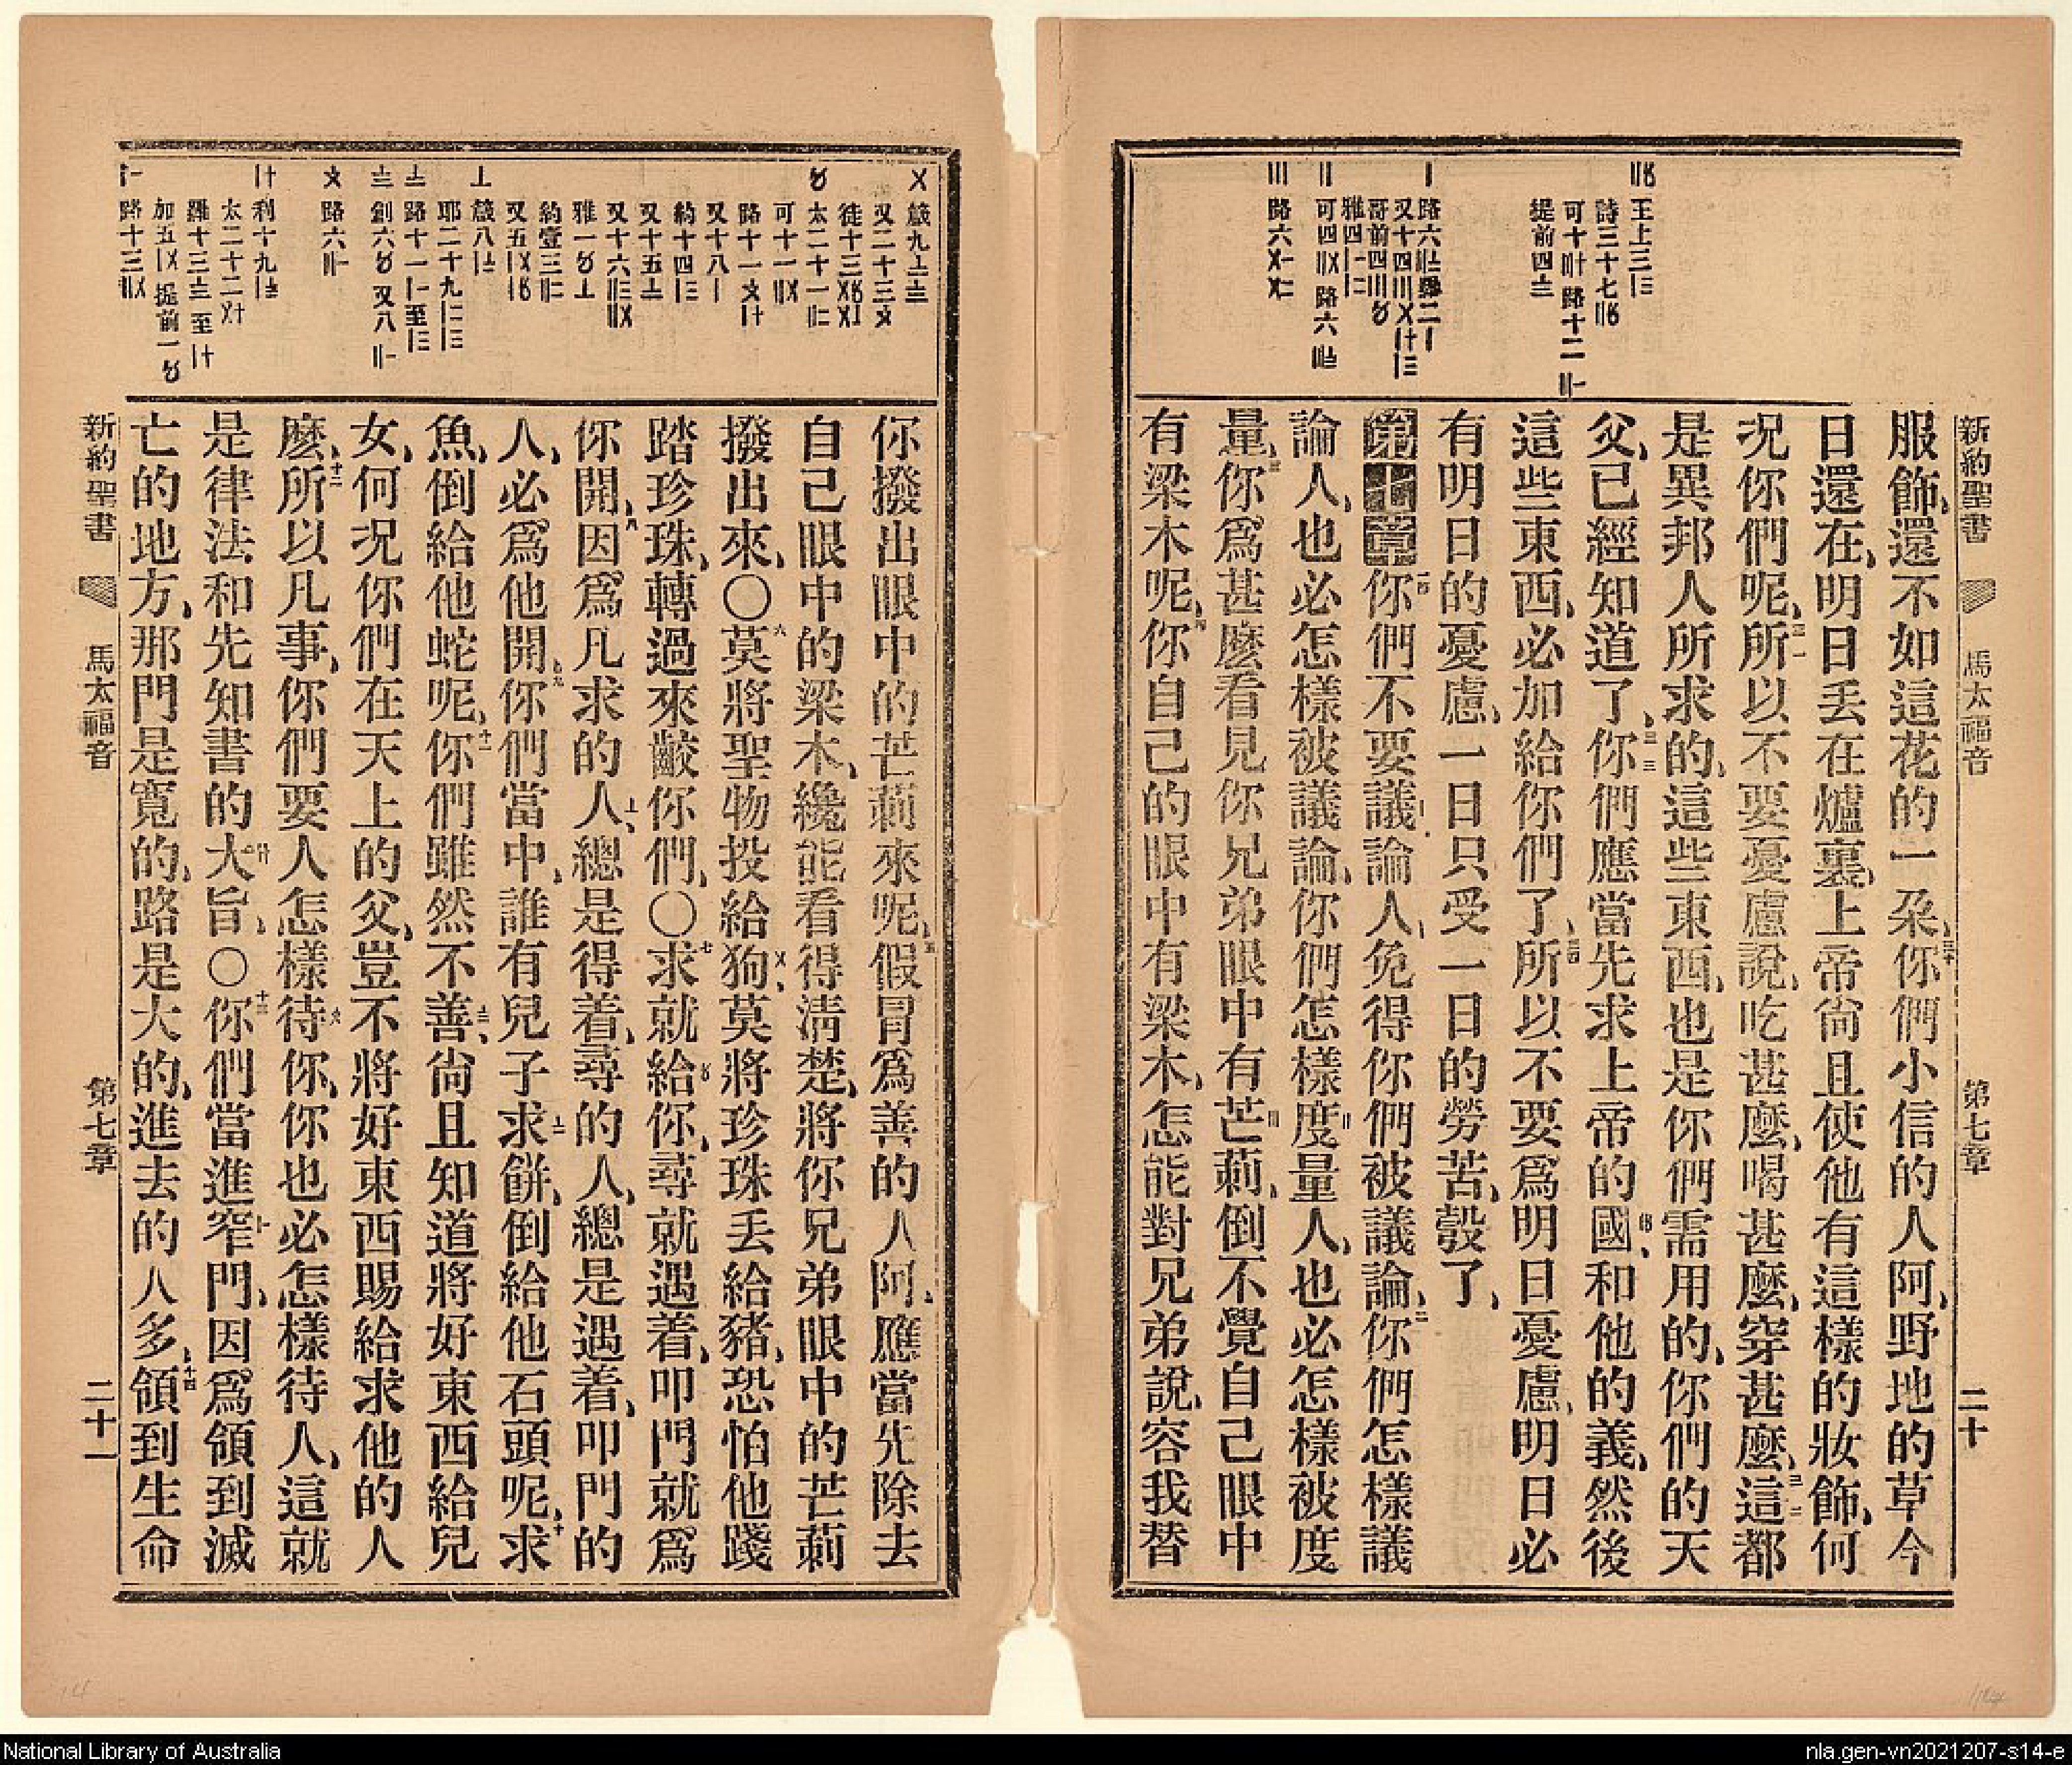 新約聖書 馬太福音 第七章 二十
服飾、還不如這花的一朶、三十你們小信的人阿、野地的草今
日還在、明日丢在爐裏、上帝尙且使他有這樣的妝飾、何
况你們呢、三一所以不要憂慮說、吃甚麽、喝甚麽、穿甚麽、三二這都
是異邦人所求的、這些東西、也是你們需用的、你們的天
父、已經知道了、三三你們應當先求上帝的國、和他的義、然後
這些東西、必加給你們了、三四所以不要爲明日憂慮、明日必
有明日的憂慮、一日只受一日的勞苦、彀了、
第七章 一你們不要議論人、免得你們被議論、二你們怎樣議
論人、也必怎樣被議論、你們怎樣度量人、也必怎樣被度
量、三你爲甚麽看見你兄弟眼中有芒莿、倒不覺自己眼中
有梁木呢、四你自己的眼中有梁木、怎能對兄弟說、容我替
你撥出眼中的芒莿來呢、五假冒爲善的人阿、應當先除去
自己眼中的梁木、纔能看得清楚、將你兄弟眼中的芒莿
撥出來、〇六莫將聖物投給狗、莫將珍珠丢給豬、恐怕他踐
踏珍珠、轉過來齩你們、〇七求就給你、尋就遇着、叩門就爲
你開、八因爲凡求的人、總是得着、尋的人、總是遇着、叩門的
人、必爲他開、九你們當中、誰有兒子求餅、倒給他石頭呢、十求
魚、倒給他蛇呢、十一你們雖然不善、尙且知道將好東西給兒
女、何况你們在天上的父、豈不將好東西賜給求他的人
麽、十二所以凡事、你們要人怎樣待你、你也必怎樣待人、這就
是律法和先知書的大旨、〇十三你們當進窄門、因爲領到滅
亡的地方、那門是寬的、路是大的、進去的人多、十四領到生命
新約聖書 馬太福音 第七章 二十一
National Library of Australia
nla.gen-vn2021207-s14-e